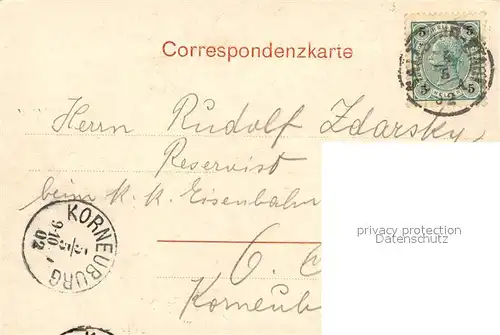 Correspondenzkarte
5 5
5 5
Herrn Rudolf Zdarsky
Reservist
beim k. k. Eisenbahn
privacy protection
Datenschutz
KORNEUBURG
9-10
5/5
02
6.
Korneub